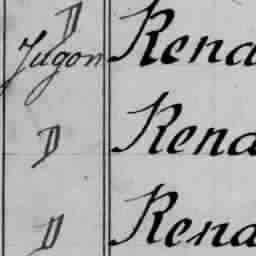 D
Jugon Rena
D Rena
D Rena